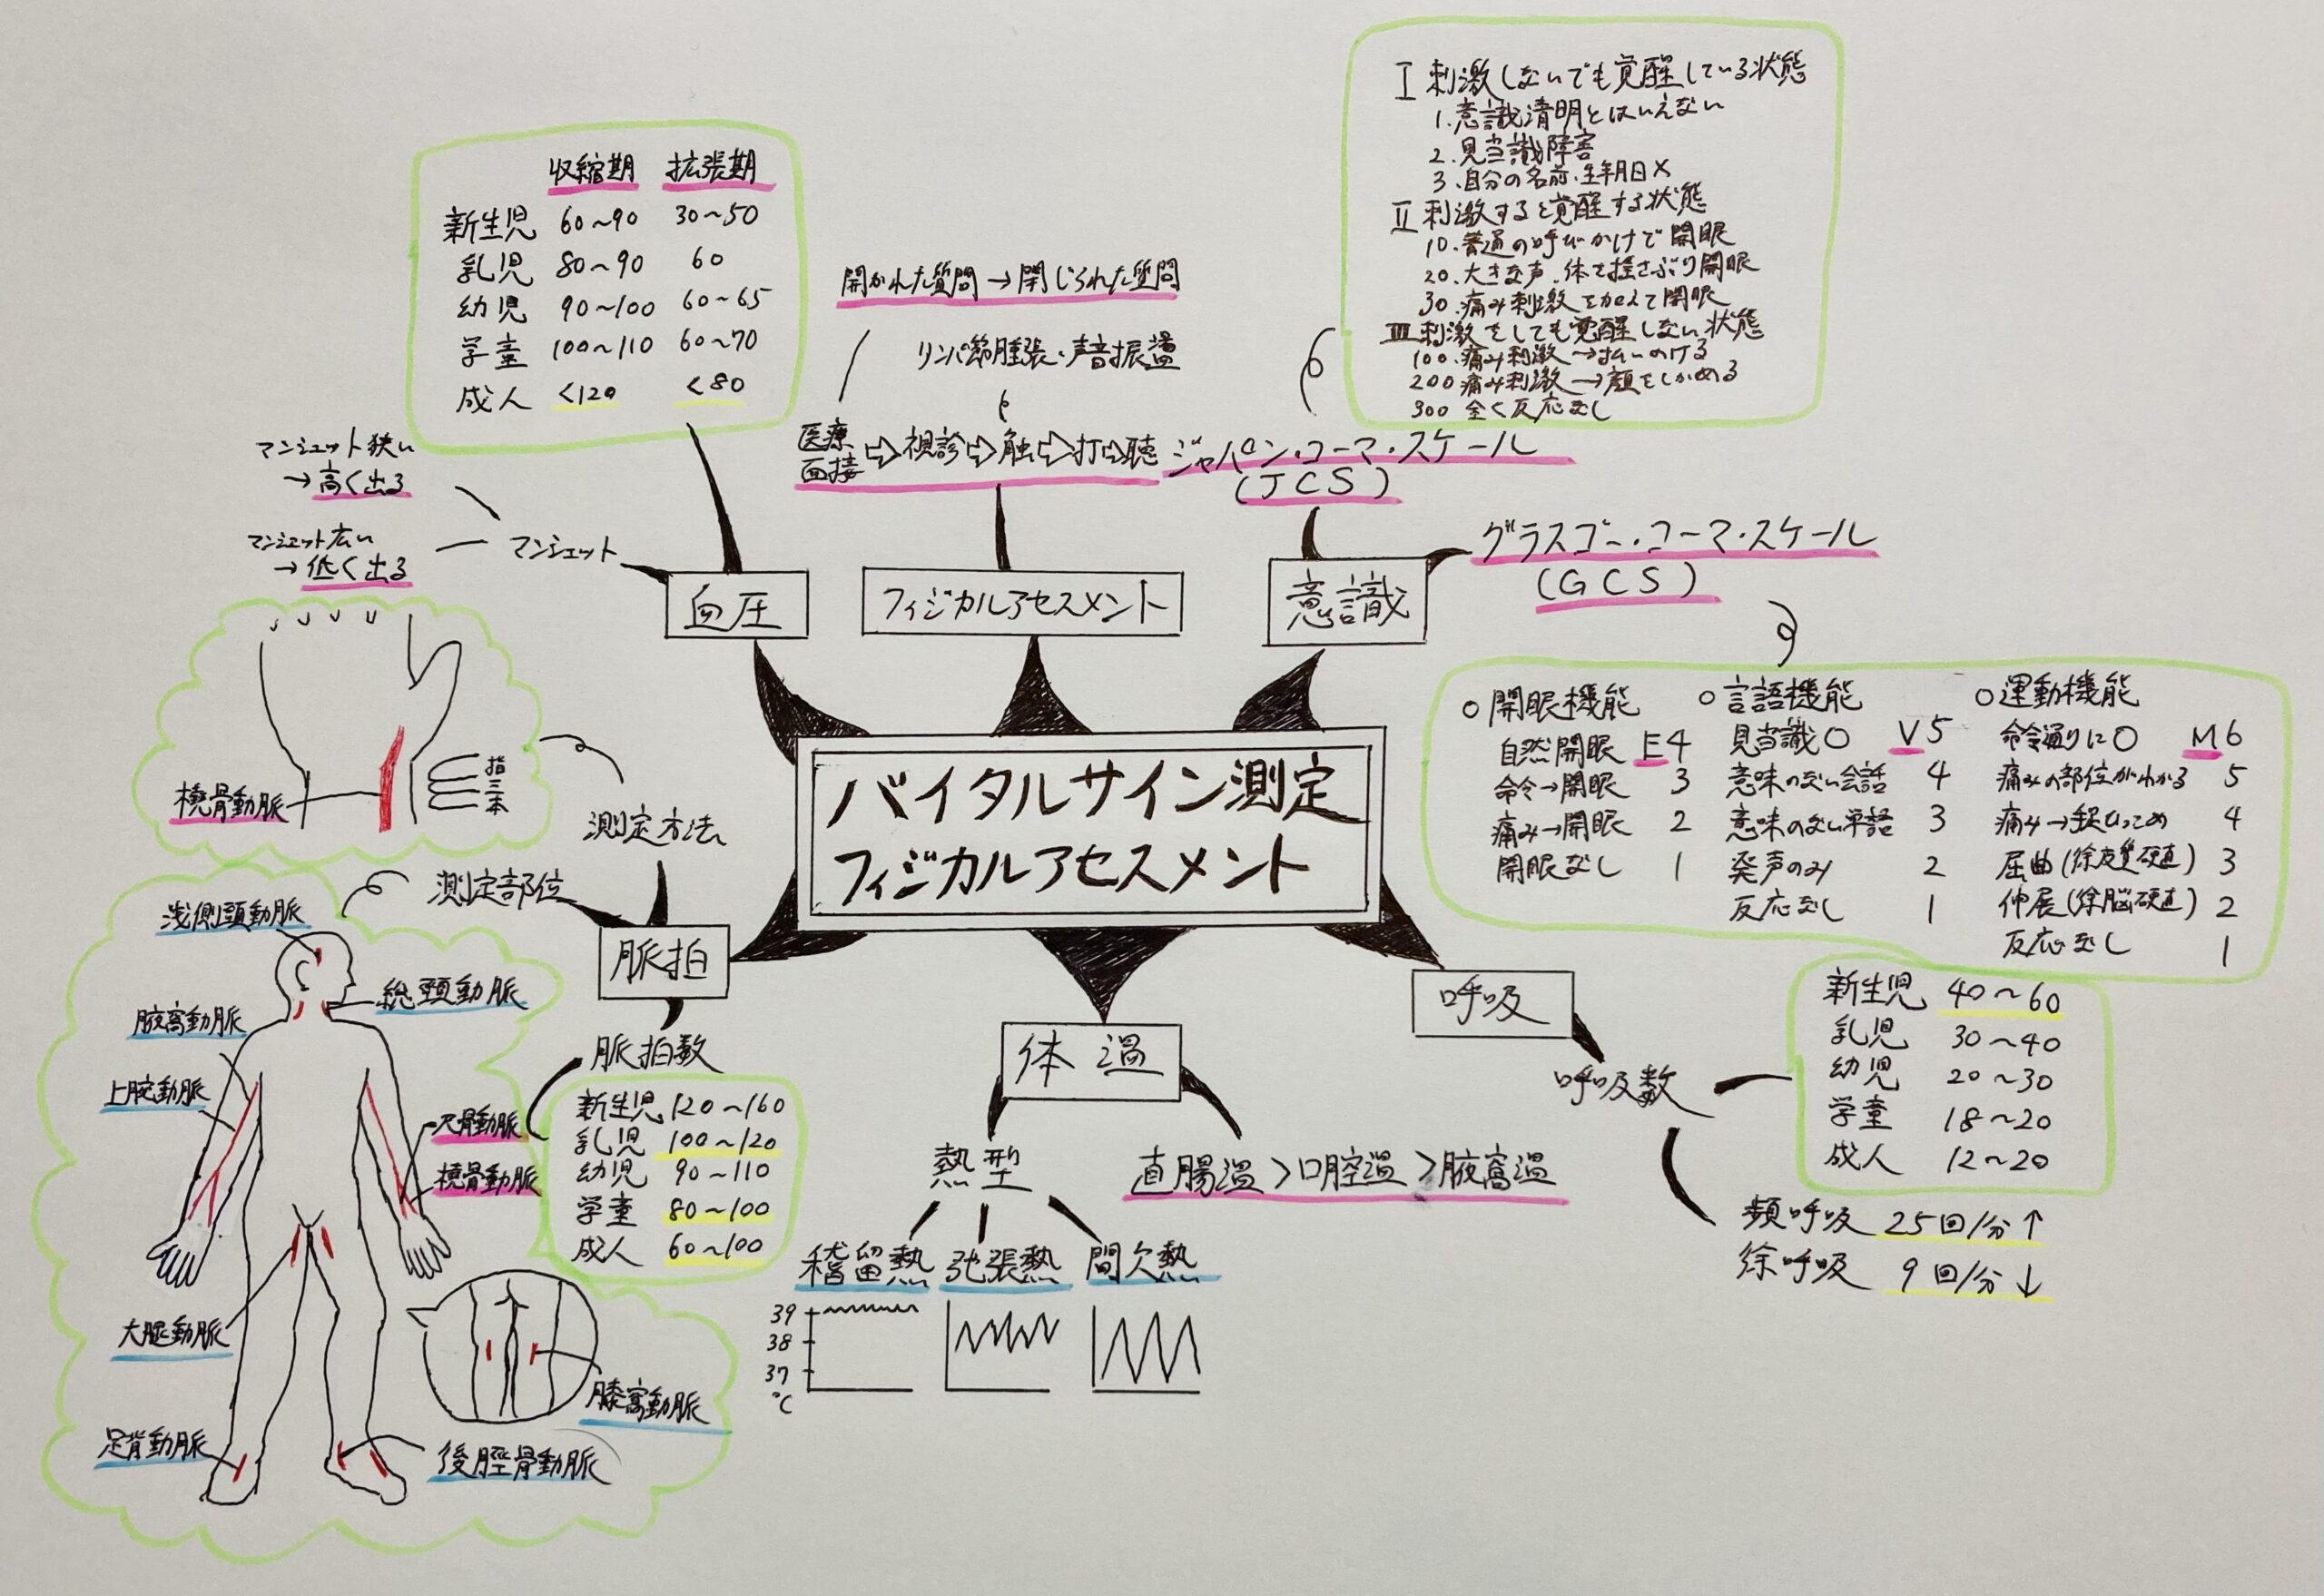 バイタルサイン測定
フィジカルアセスメント
血圧
収縮期 拡張期
新生児 60~90 30~50
乳児 80~90 60
幼児 90~100 60~65
学童 100~110 60~70
成人 <120 <80
マンシェット
マンシェット狭い
→高く出る
マンシェット広い
→低く出る
フィジカルアセスメント
医療面接⇨視診⇨触⇨打⇨聴
開かれた質問→閉じられた質問
リンパ節腫張・声音振盪
意識
ジャパン・コーマ・スケール
(JCS)
Ⅰ 刺激しないでも覚醒している状態
1.意識清明とはいえない
2.見当識障害
3.自分の名前.生年月日×
Ⅱ 刺激すると覚醒する状態
10.普通の呼びかけで開眼
20.大きな声.体を揺さぶり開眼
30.痛み刺激を加えて開眼
Ⅲ 刺激をしても覚醒しない状態
100.痛み刺激→払いのける
200 痛み刺激→顔をしかめる
300 全く反応なし
グラスゴー・コーマ・スケール
(GCS)
○開眼機能
自然開眼 E4
命令→開眼 3
痛み→開眼 2
開眼なし 1
○言語機能
見当識○ V5
意味のない会話 4
意味のない単語 3
発声のみ 2
反応なし 1
○運動機能
命令通りに○ M6
痛みの部位がわかる 5
痛み→引っこめ 4
屈曲(除皮質硬直) 3
伸展(除脳硬直) 2
反応なし 1
呼吸
呼吸数
新生児 40~60
乳児 30~40
幼児 20~30
学童 18~20
成人 12~20
頻呼吸 25回/分↑
徐呼吸 9回/分↓
体温
直腸温>口腔温>腋窩温
熱型
稽留熱 弛張熱 間欠熱
39
38
37
℃
脈拍
測定方法
橈骨動脈
指三本
測定部位
浅側頭動脈
総頸動脈
腋窩動脈
上腕動脈
尺骨動脈
橈骨動脈
大腿動脈
膝窩動脈
足背動脈
後脛骨動脈
脈拍数
新生児 120~160
乳児 100~120
幼児 90~110
学童 80~100
成人 60~100